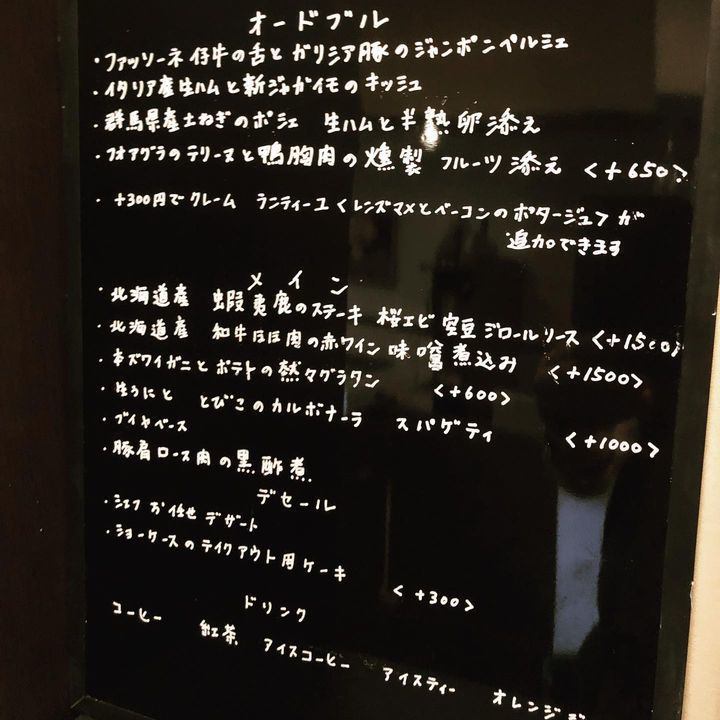 オードブル
・ファッソーネ仔牛の舌とガリシア豚のジャンボンペルシェ
・イタリア産生ハムと新ジャガイモのキッシュ
・群馬県産土ねぎのポシェ 生ハムと半熟卵添え
・フォアグラのテリーヌと鴨胸肉の燻製 フルーツ添え <+650>
・+300円でクレーム ランティーユくレンズマメとベーコンのポタージュ>が
追加できます
メイン
・北海道産 蝦夷鹿のステーキ 桜エビ 空豆 ジロールソース <+1500>
・北海道産 和牛ほほ肉の赤ワイン味噌煮込み <+1500>
・本ズワイガニとポテトの熱々グラタン <+600>
・生うにと とびこのカルボナーラ スパゲティ <+1000>
・ブイヤベース
・豚肩ロース肉の黒酢煮
デセール
・シェフお任せデザート
・ショーケースのテイクアウト用ケーキ <+300>
ドリンク
コーヒー 紅茶 アイスコーヒー アイスティー オレンジ